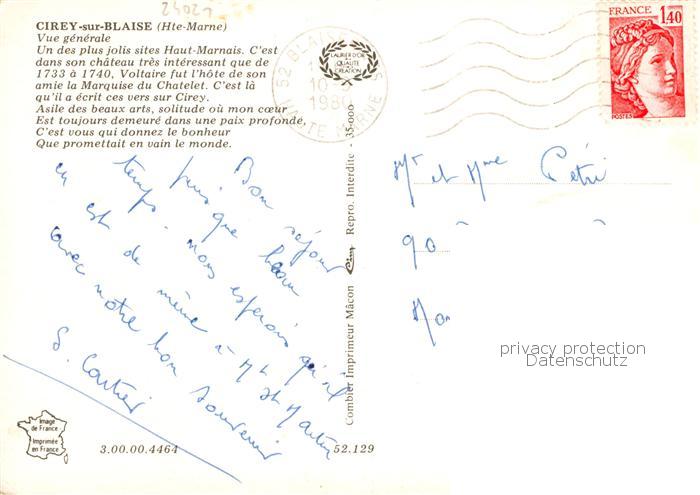 24021
CIREY-sur-BLAISE (Hte-Marne)
Vue générale
Un des plus jolis sites Haut-Marnais. C'est
dans son château très intéressant que de
1733 à 1740, Voltaire fut l'hôte de son
amie la Marquise du Chatelet. C'est là
qu'il a écrit ces vers sur Cirey.
Asile des beaux arts, solitude où mon cœur
Est toujours demeuré dans une paix profonde,
C'est vous qui donnez le bonheur
Que promettait en vain le monde.
Bon séjour
puis que beau
temps. nous espérons qu'il
en est de même à St Martin
avec notre bon souvenir
S. Cartier
Image
de France
Imprimée
en France
3.00.00.4464
52.129
Combier Imprimeur Mâcon Cim Repro. Interdite - 35-000
52 BLAISE
10
1980
HAUTE MARNE
LAURIER D'OR
QUALITÉ
CRÉATION
FRANCE
1,40
POSTES
Mr et Mme Pétri
90
privacy protection
Datenschutz